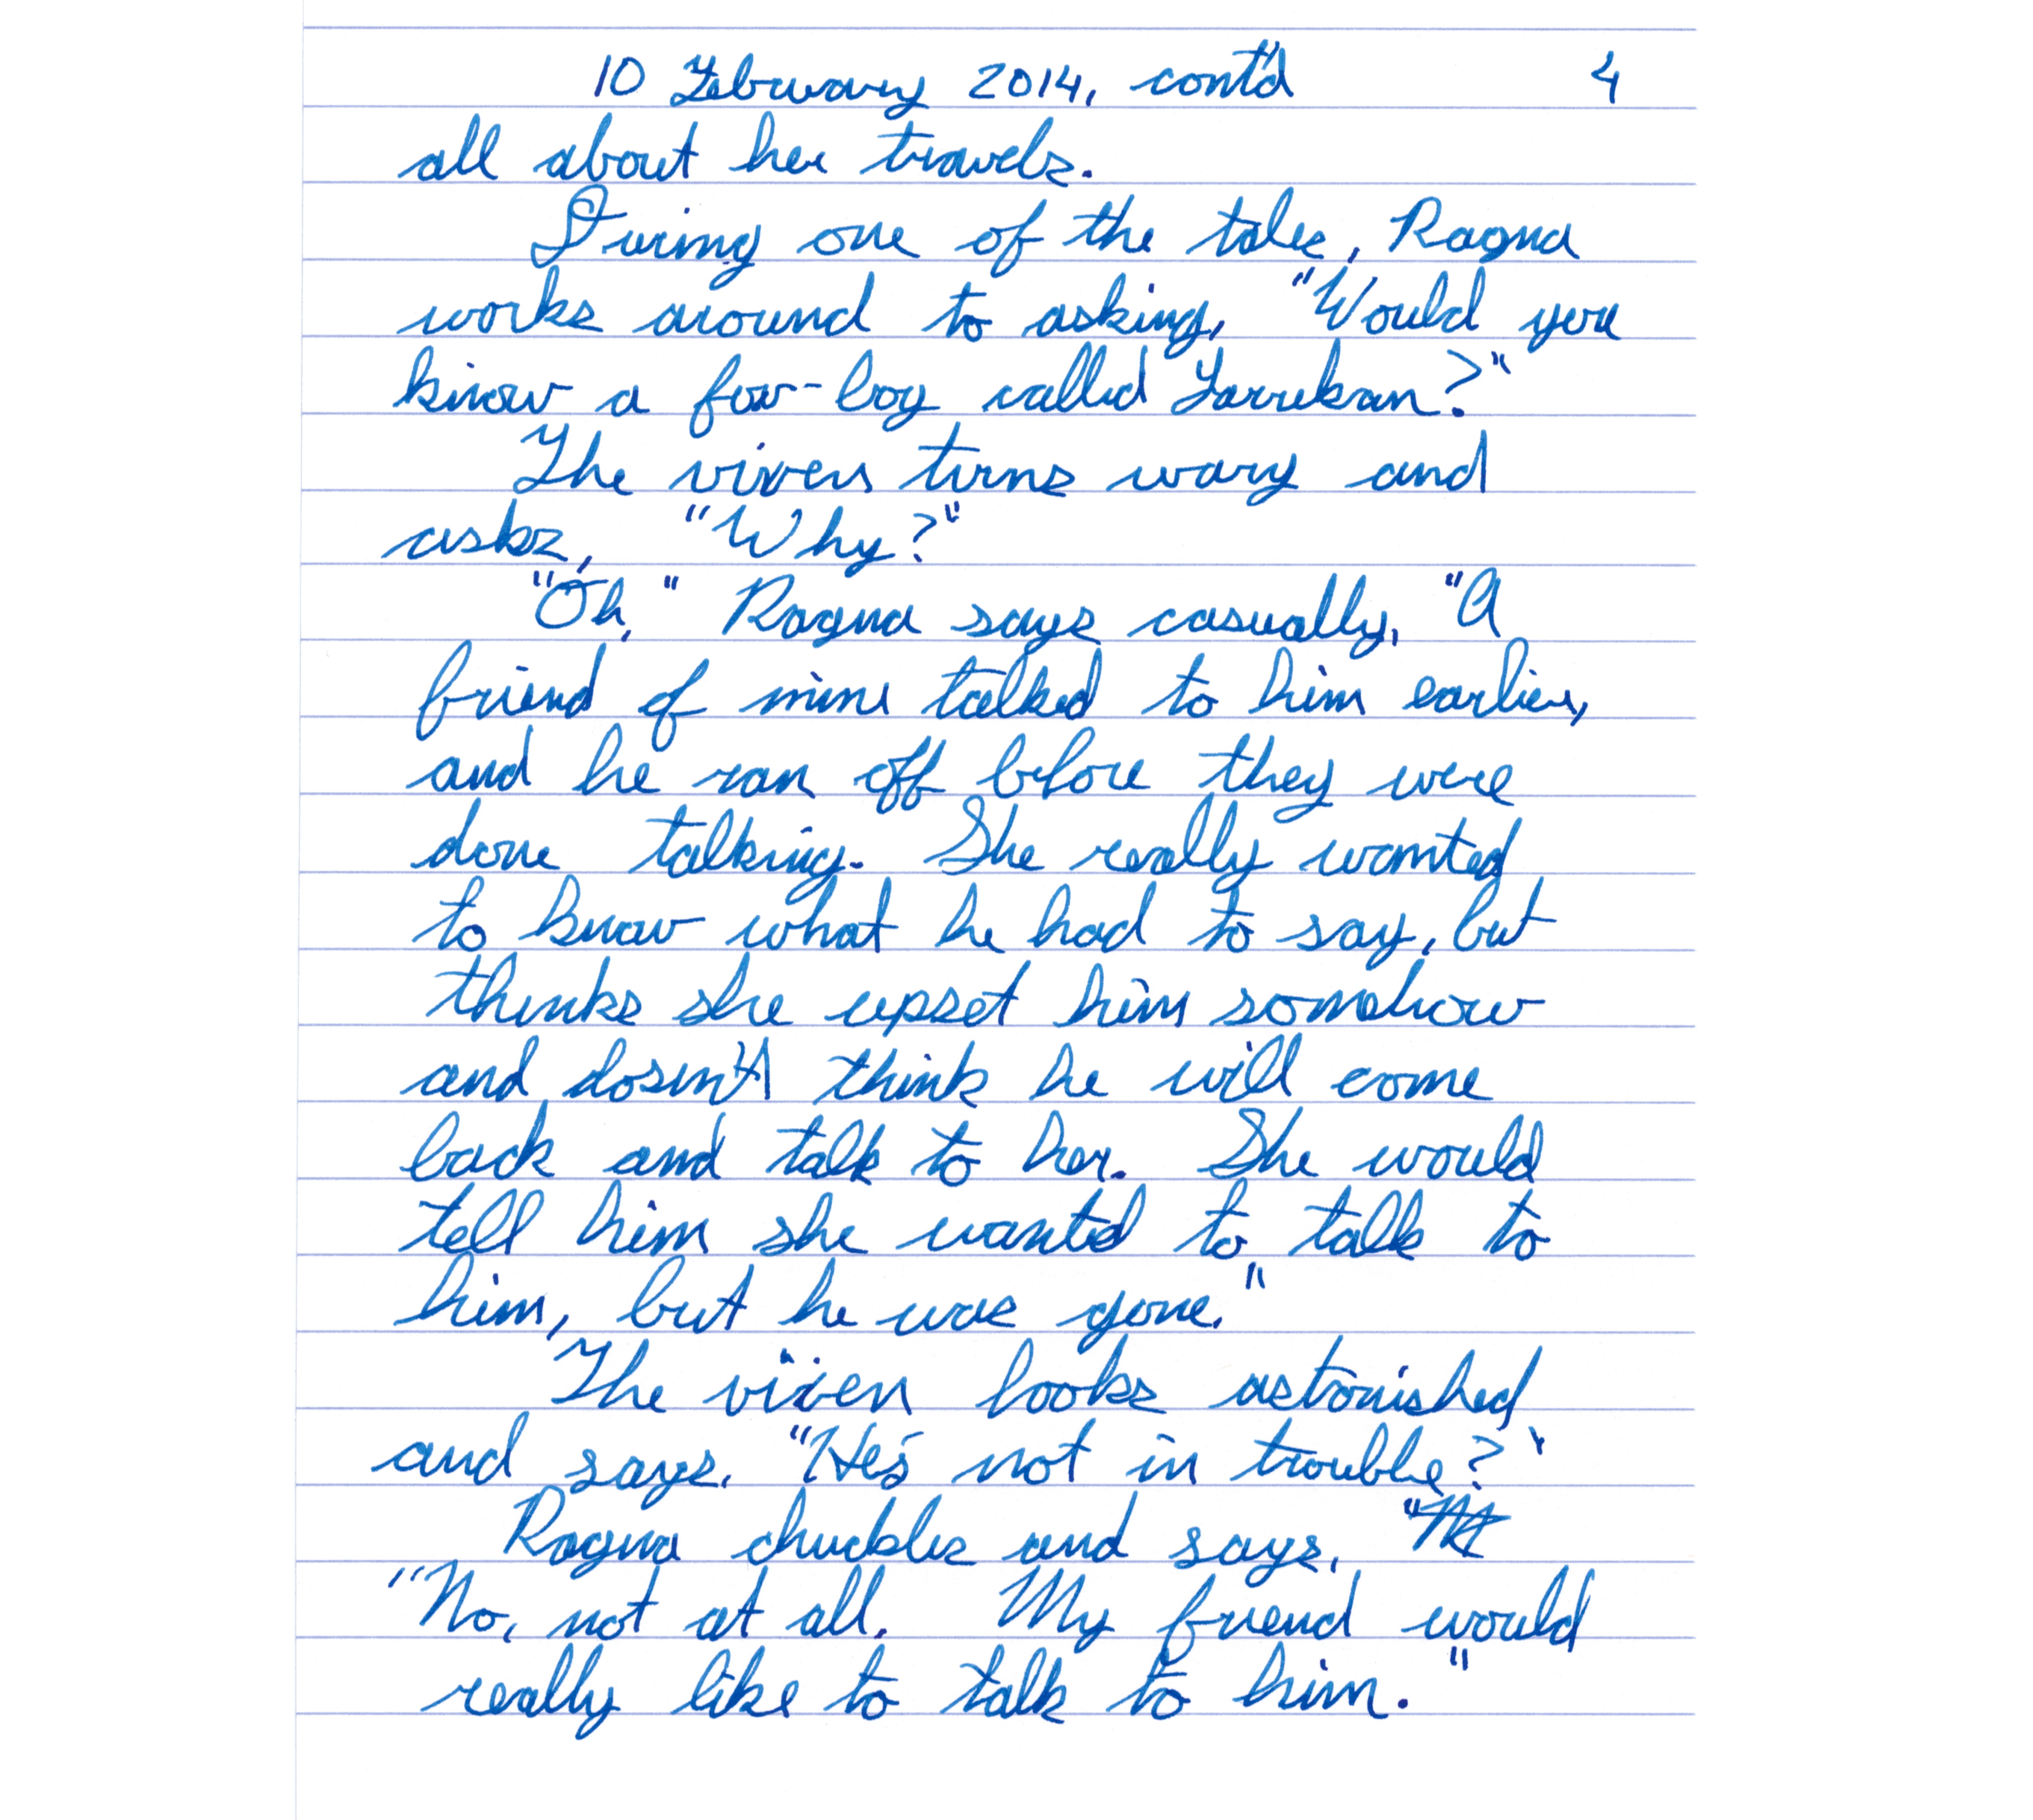 10 February 2014, cont'd 4
all about her travels.
During one of the tales, Ragna
works around to asking, "Would you
know a fox-boy called Tarrekan?"
The vixen turns wary and
asks, "Why?"
"Oh," Ragna says casually, "A
friend of mine talked to him earlier,
and he ran off before they were
done talking. She really wanted
to know what he had to say, but
thinks she upset him somehow
and dosn't think he will come
back and talk to her. She would
tell him she wanted to talk to
him, but he was gone."
The vixen looks astonished
and says, "He's not in trouble?"
Ragna chuckles and says,
"No, not at all. My friend would
really like to talk to him."